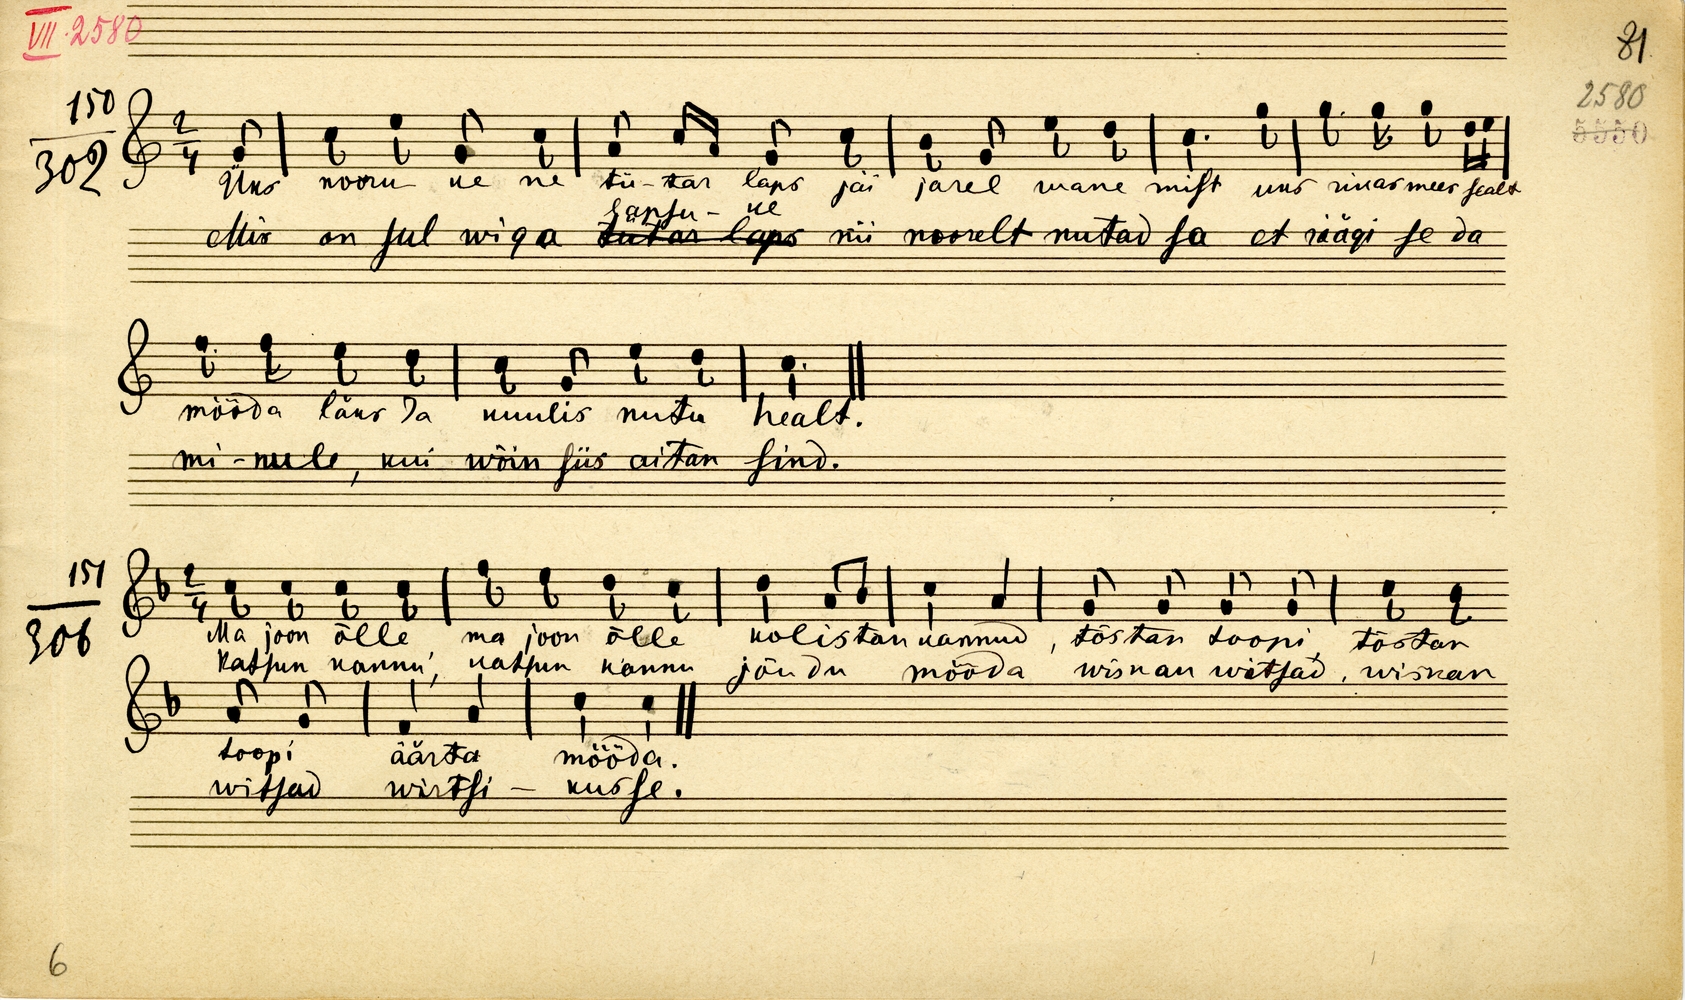 VII. 2580
81
2580
5550
150
302
2/4
Üks nooru- ke ne tü-tar laps jäi järel wane mist uks rikas mees sealt
lapsu - ke
Mis on sul wiga tütar laps nii noorelt nutad sa et räägi se da
mööda läks Ja kuulis nutu healt.
mi - nule, kui wõin siis aitan sind.
151
306
2/4
Ma joon õlle ma joon õlle kolistan kannud, tõstan toopi, tõstan
Katsun kannu, katsun kannu jõudu mööda wiskan witsad, wiskan
toopi äärta mööda.
witsad wirtsi - kusse.
6